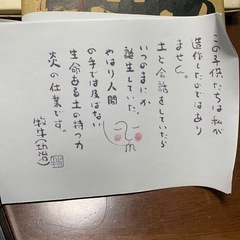 この子供たちは私が
造作したのではあり
ません。
土と会話をしていたら
いつのまにか
誕生していた。
やはり人間
の手では及ばない
生命ある土の持つ力
炎の仕業です。